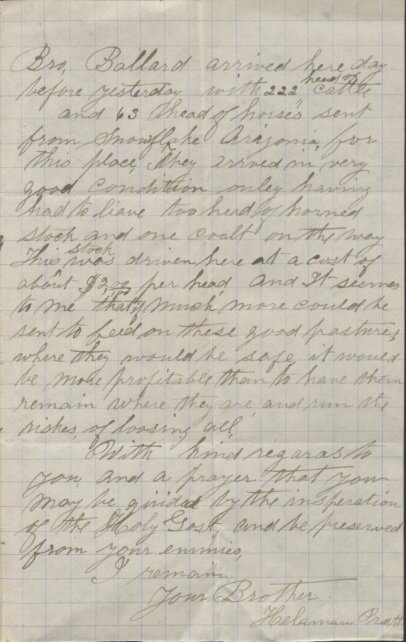 Bro, Ballard arrived here day
before yesterday with 222 head of cattle
and 63 head of horses sent
from Snowflake Arizonia, for
this place, they arrived in very
good condition onley having
had to leave too head of horned
stock and one coalt on the way
This stock was driven here at a cost of
about $2.00 per head and It seems
to me that if much more could be
sent to feed on these good pastures,
where they would be safe, it would
be more profitable than to have them
remain where they are, and run the
riskes of loosing all,
With kind regards to
you, and a prayer that you
may be guided by the insperation
of the Holy Gost and be preserved
from your enmies,
I remain
Your Brother
Helaman Pratt